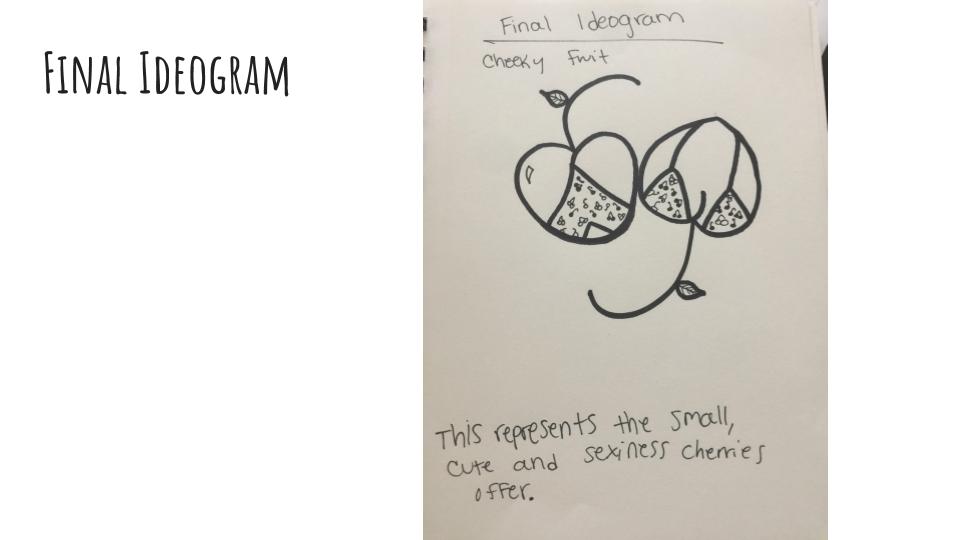 Final Ideogram
Final Ideogram
Cheeky Fruit
This represents the small,
cute and sexiness cherries
offer.